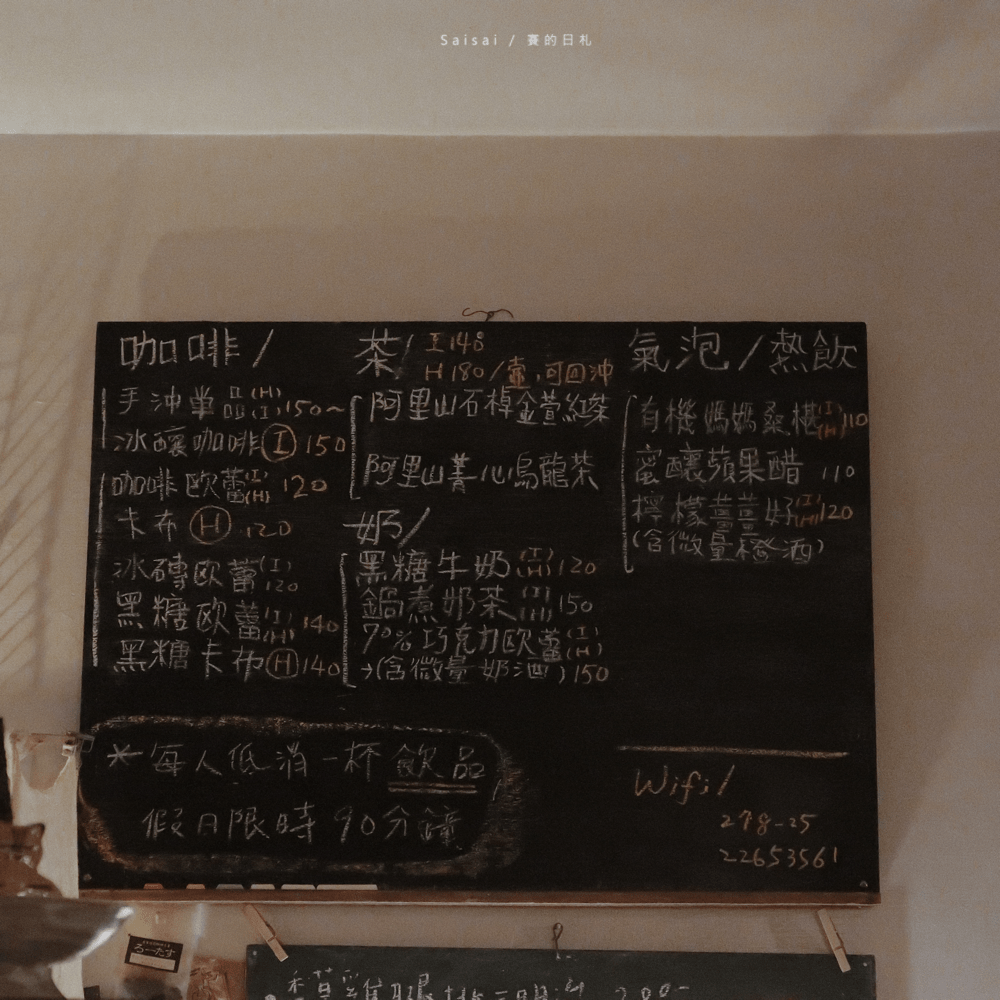 Saisai / 賽的日札
咖啡/
手沖單品(H)(I)150~
冰釀咖啡(I)150
咖啡歐蕾(I)(H)120
卡布(H)120
冰磚歐蕾(I)120
黑糖歐蕾(I)(H)140
黑糖卡布(H)140
茶/
I 140
H 180/壺,可回沖
阿里山石棹金萱紅茶
阿里山菁心烏龍茶
奶/
黑糖牛奶(I)(H)120
鍋煮奶茶(I)(H)150
70%巧克力歐蕾(I)(H)
→(含微量奶酒)150
氣泡/熱飲
有機媽媽桑椹(I)(H)110
蜜釀蘋果醋 110
檸檬薑薑好(I)(H)120
(含微量橙酒)
*每人低消一杯飲品
假日限時90分鐘
Wifi/
278-25
22653561
ろーたす
香草雞腿排三明治 200-